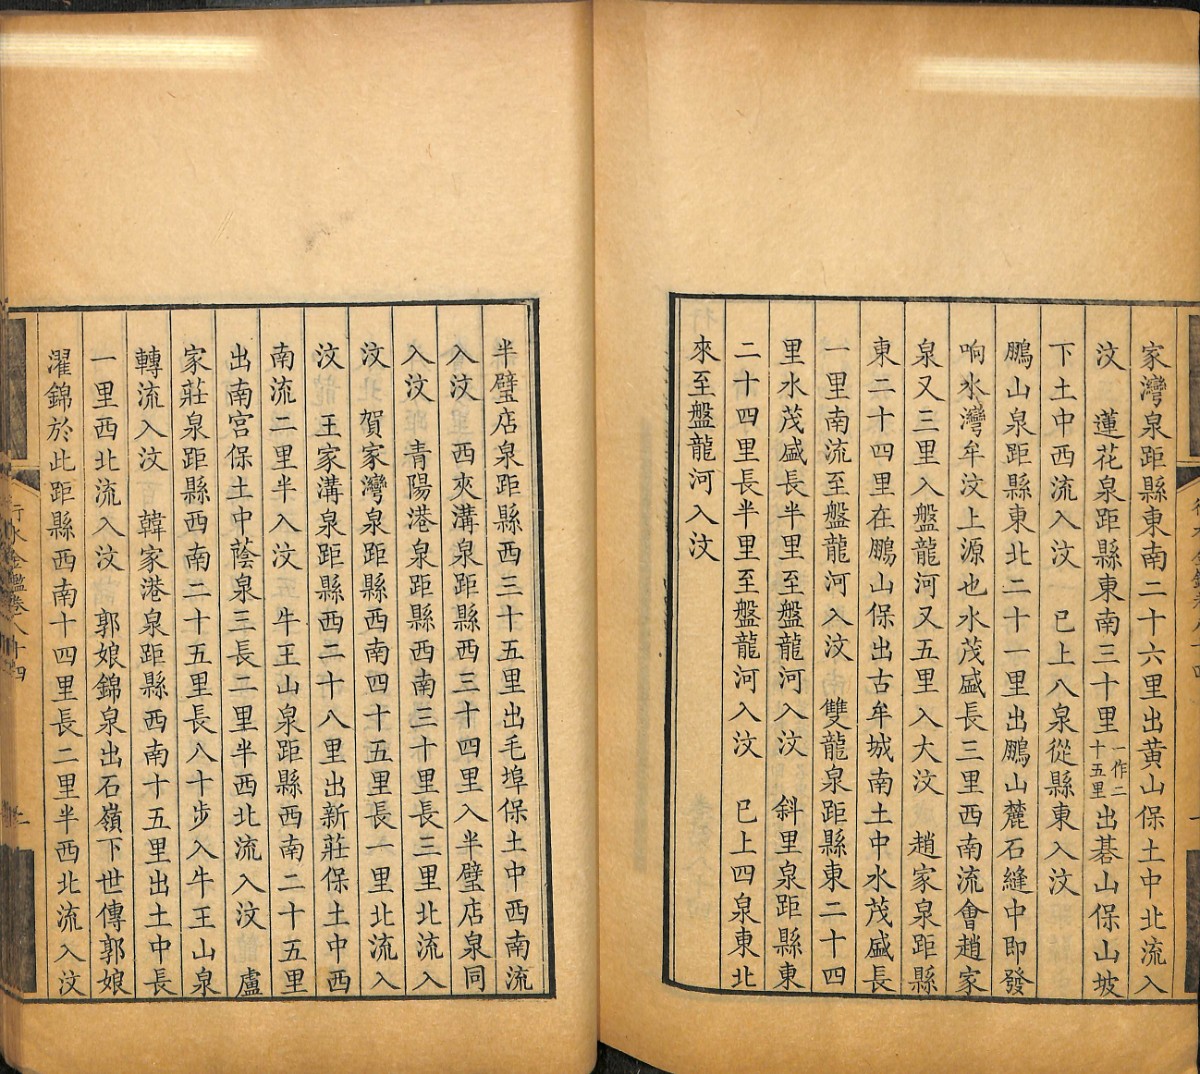 家灣泉距縣東南二十六里出黃山保土中北流入
汶　蓮花泉距縣東南三十里一作二十五里出碁山保山坡
下土中西流入汶　已上八泉從縣東入汶
鵬山泉距縣東北二十一里出鵬山麓石縫中即發
响水灣牟汶上源也水茂盛長三里西南流會趙家
泉又三里入盤龍河又五里入大汶　趙家泉距縣
東二十四里在鵬山保出古牟城南土中水茂盛長
一里南流至盤龍河入汶　雙龍泉距縣東二十四
里水茂盛長半里至盤龍河入汶　斜里泉距縣東
二十四里長半里至盤龍河入汶　已上四泉東北
來至盤龍河入汶
半璧店泉距縣西三十五里出毛埠保土中西南流
入汶　西夾溝泉距縣西三十四里入半璧店泉同
入汶　青陽港泉距縣西南三十里長三里北流入
汶　賀家灣泉距縣西南四十五里長一里北流入
汶　王家溝泉距縣西二十八里出新莊保土中西
南流二里半入汶　牛王山泉距縣西南二十五里
出南宮保土中蔭泉三長二里半西北流入汶　盧
家莊泉距縣西南二十五里長八十步入牛王山泉
轉流入汶　韓家港泉距縣西南十五里出土中長
一里西北流入汶　郭娘錦泉出石嶺下世傳郭娘
濯錦於此距縣西南十四里長二里半西北流入汶
行水金鑑卷八十四